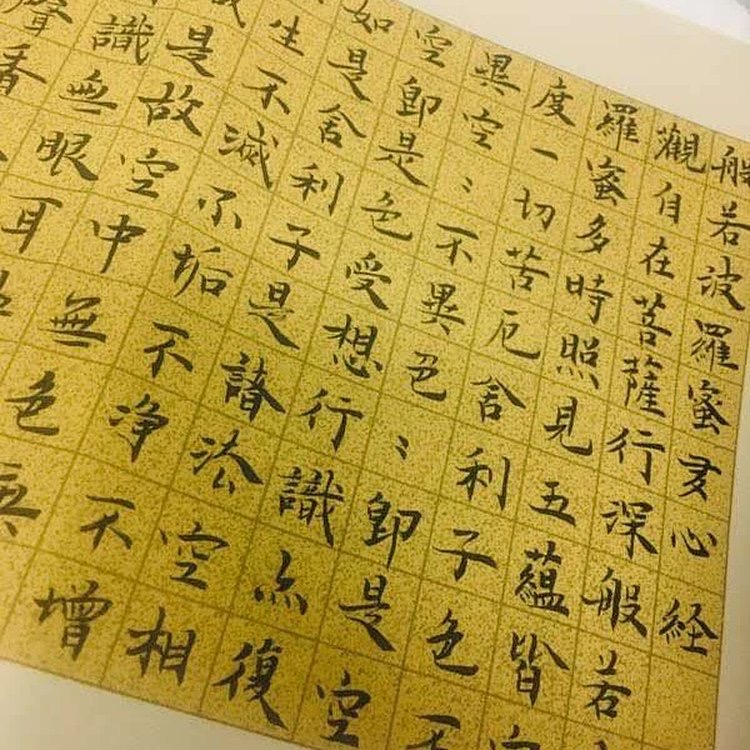 般若波羅蜜多心経
觀自在菩薩行深般若
羅蜜多時照見五蘊皆空
度一切苦厄舍利子色不
異空〻不異色〻即是空
空即是色受想行識亦復
如是舍利子是諸法空相
生不滅不垢不净不增
是故空中無色無
識無眼耳
聲香